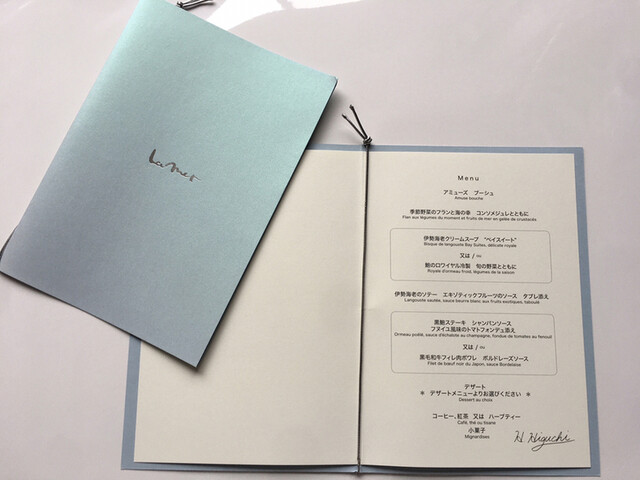 La mer
Menu
アミューズ　ブーシュ
Amuse bouche
季節野菜のフランと海の幸　コンソメジュレとともに
Flan aux légumes du moment et fruits de mer en gelée de crustacés
伊勢海老クリームスープ　"ベイスイート"
Bisque de langouste Bay Suites, délicate royale
又は / ou
鮑のロワイヤル冷製　旬の野菜とともに
Royale d'ormeau froid, légumes de la saison
伊勢海老のソテー　エキゾティックフルーツのソース　タブレ添え
Langouste sautée, sauce beurre blanc aux fruits exotiques, taboulé
黒鮑ステーキ　シャンパンソース
フヌイユ風味のトマトフォンデュ添え
Ormeau poêlé, sauce d'échalote au champagne, fondue de tomates au fenouil
又は / ou
黒毛和牛フィレ肉ポワレ　ボルドレーズソース
Filet de bœuf noir du Japon, sauce Bordelaise
デザート
※　デザートメニューよりお選びください　※
Dessert au choix
コーヒー、紅茶　又は　ハーブティー
Café, thé ou tisane
小菓子
Mignardises
H. Higuchi